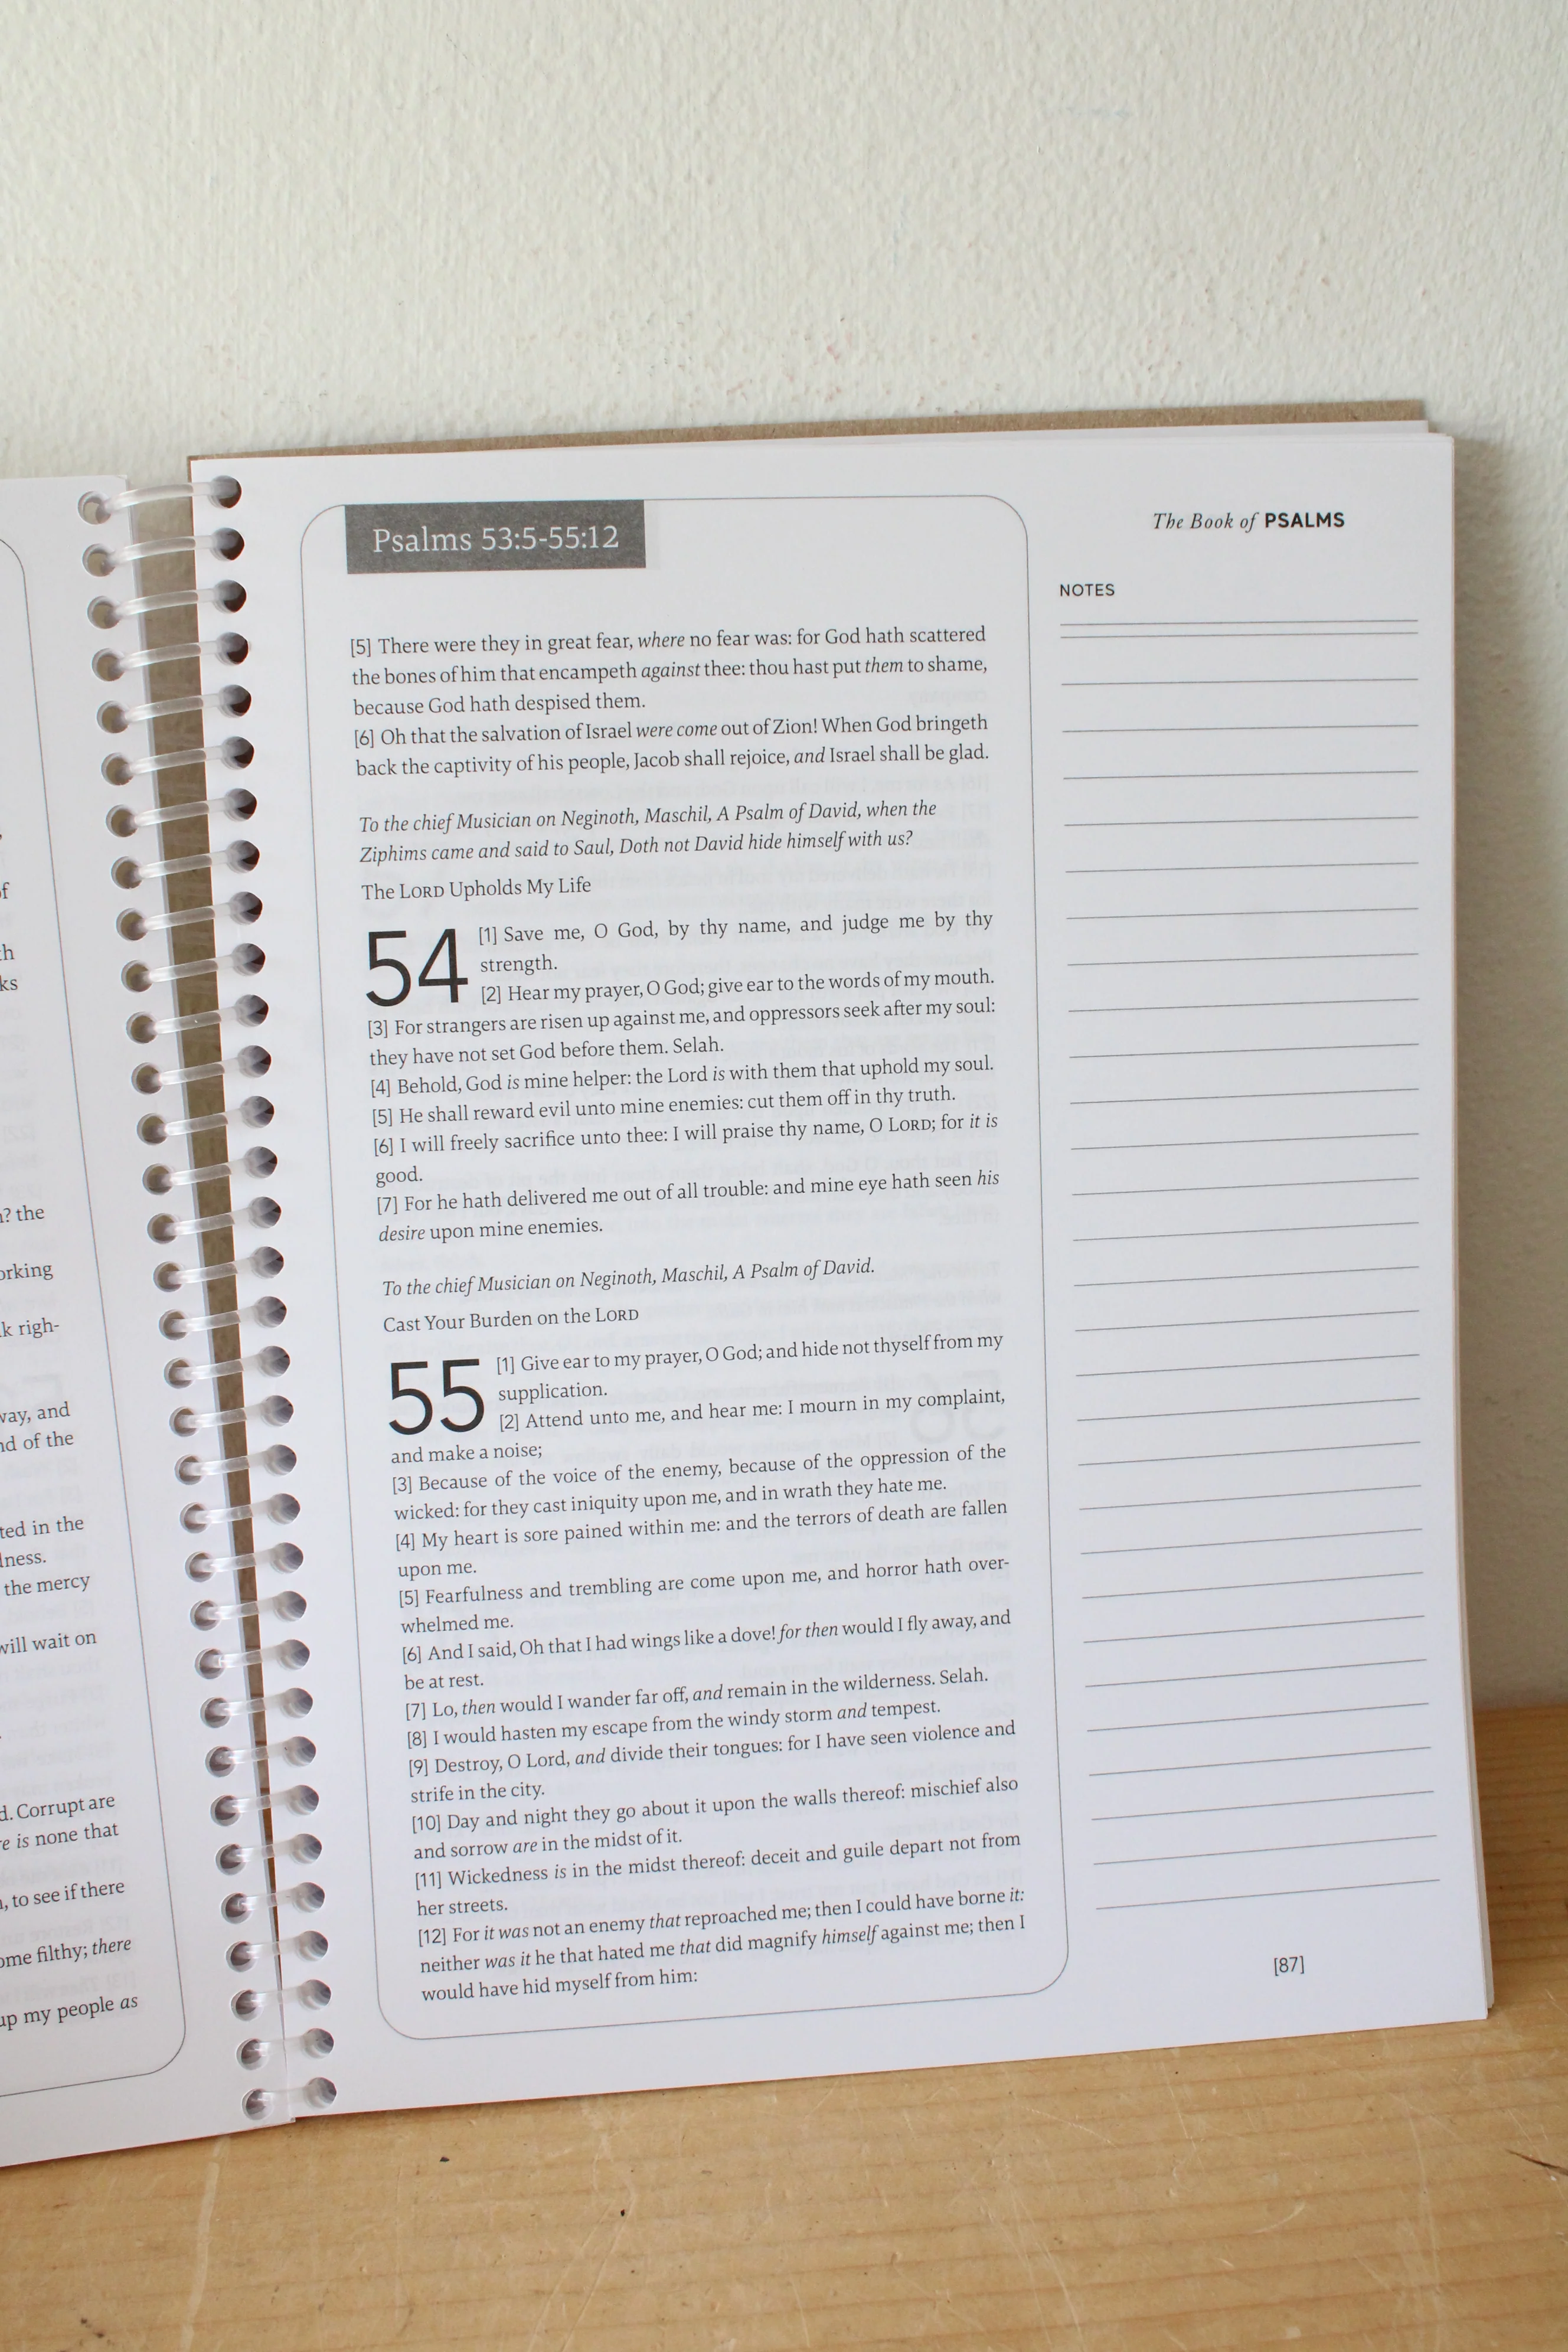 f
th
ks
? the
orking
k righ-
vay, and
nd of the
ted in the
lness.
the mercy
will wait on
d. Corrupt are
re is none that
, to see if there
ome filthy; there
up my people as
Psalms 53:5-55:12
[5] There were they in great fear, where no fear was: for God hath scattered
the bones of him that encampeth against thee: thou hast put them to shame,
because God hath despised them.
[6] Oh that the salvation of Israel were come out of Zion! When God bringeth
back the captivity of his people, Jacob shall rejoice, and Israel shall be glad.
To the chief Musician on Neginoth, Maschil, A Psalm of David, when the
Ziphims came and said to Saul, Doth not David hide himself with us?
The LORD Upholds My Life
54 [1] Save me, O God, by thy name, and judge me by thy
strength.
[2] Hear my prayer, O God; give ear to the words of my mouth.
[3] For strangers are risen up against me, and oppressors seek after my soul:
they have not set God before them. Selah.
[4] Behold, God is mine helper: the Lord is with them that uphold my soul.
[5] He shall reward evil unto mine enemies: cut them off in thy truth.
[6] I will freely sacrifice unto thee: I will praise thy name, O LORD; for it is
good.
[7] For he hath delivered me out of all trouble: and mine eye hath seen his
desire upon mine enemies.
To the chief Musician on Neginoth, Maschil, A Psalm of David.
Cast Your Burden on the LORD
55 [1] Give ear to my prayer, O God; and hide not thyself from my
supplication.
[2] Attend unto me, and hear me: I mourn in my complaint,
and make a noise;
[3] Because of the voice of the enemy, because of the oppression of the
wicked: for they cast iniquity upon me, and in wrath they hate me.
[4] My heart is sore pained within me: and the terrors of death are fallen
upon me.
[5] Fearfulness and trembling are come upon me, and horror hath over-
whelmed me.
[6] And I said, Oh that I had wings like a dove! for then would I fly away, and
be at rest.
[7] Lo, then would I wander far off, and remain in the wilderness. Selah.
[8] I would hasten my escape from the windy storm and tempest.
[9] Destroy, O Lord, and divide their tongues: for I have seen violence and
strife in the city.
[10] Day and night they go about it upon the walls thereof: mischief also
and sorrow are in the midst of it.
[11] Wickedness is in the midst thereof: deceit and guile depart not from
her streets.
[12] For it was not an enemy that reproached me; then I could have borne it:
neither was it he that hated me that did magnify himself against me; then I
would have hid myself from him:
The Book of PSALMS
NOTES
[87]